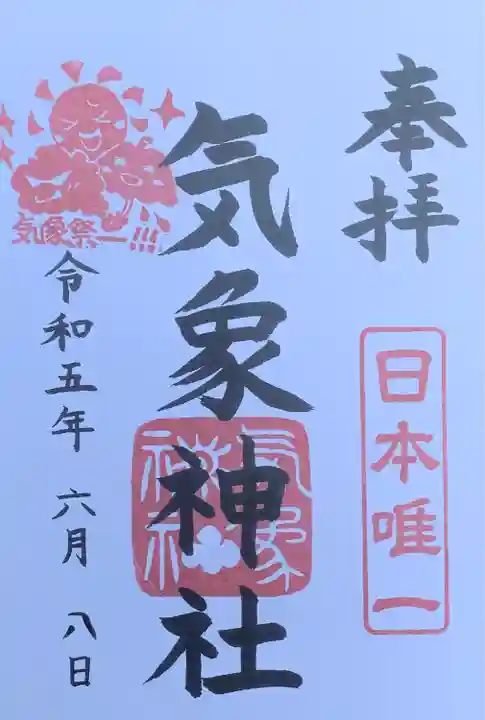 奉拝
日本唯一
気象神社
氣象
神社
気象祭ー!!!
令和五年 六月 八日